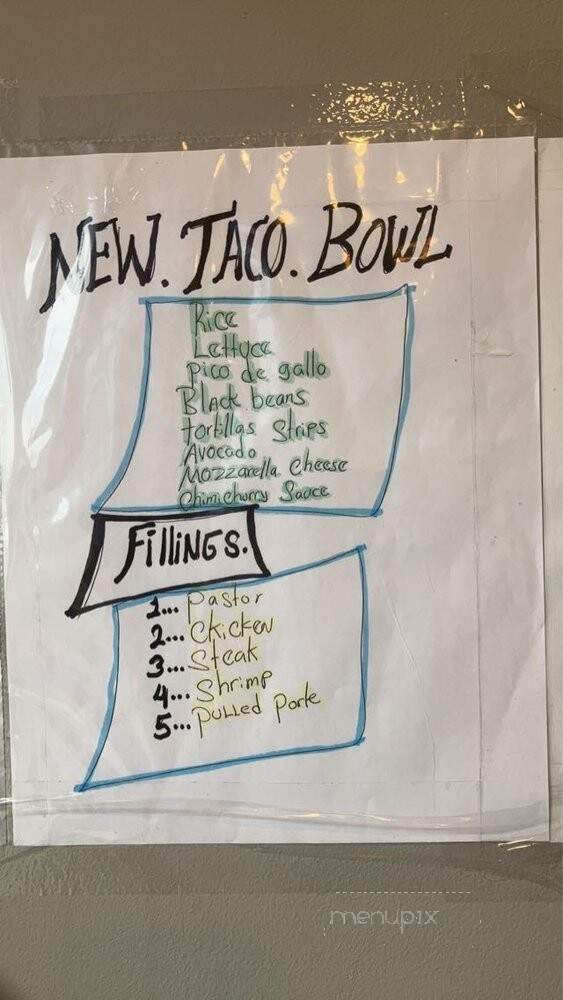 NEW. TACO. BOWL
Rice
Lettuce
pico de gallo
Black beans
tortillas strips
Avocado
Mozzarella cheese
Chimichurry Sauce
FilliNGS.
1... pastor
2... chicken
3... Steak
4... Shrimp
5... pulled pork
menupix